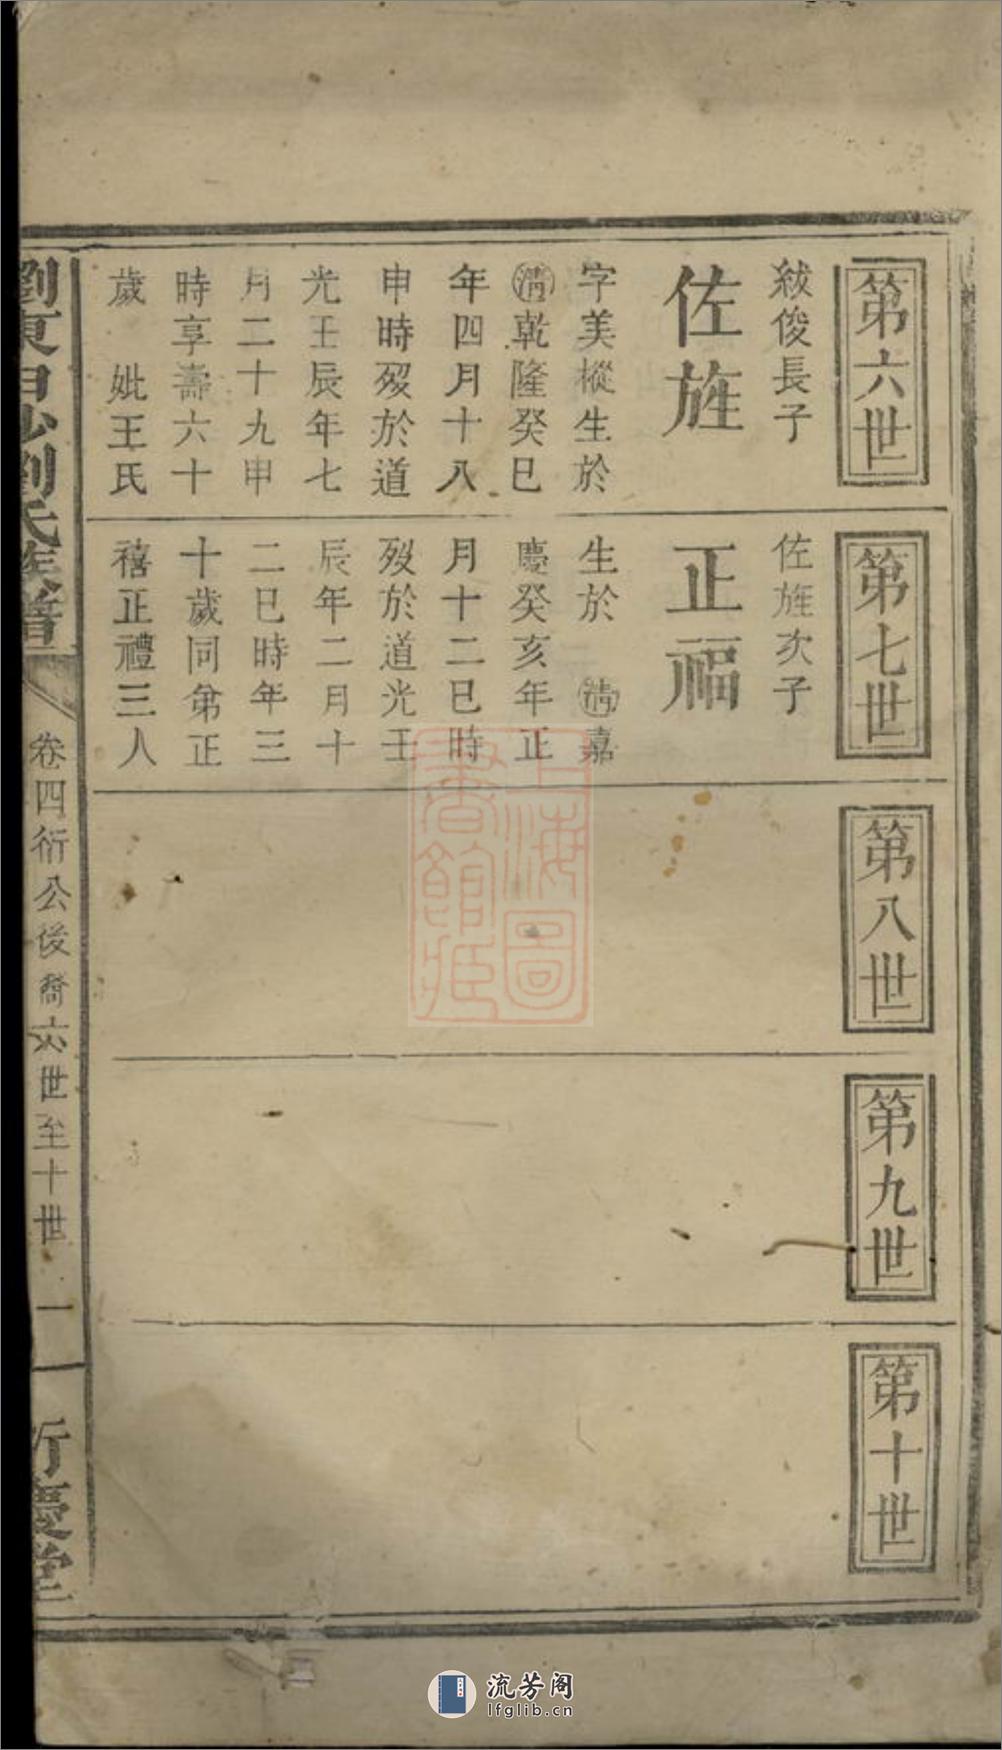 第六世
紱俊長子
佐旌
字美樅生於
㊞清乾隆癸巳
年四月十八
申時歿於道
光壬辰年七
月二十九申
時享壽六十
歲　妣王氏
第七世
佐旌次子
正福
生於　清嘉
慶癸亥年正
月十二巳時
歿於道光壬
辰年二月十
二巳時年三
十歲同弟正
禧正禮三人
第八世
第九世
第十世
劉氏族譜
卷四衍公後裔六世至十世
一
慶堂
上海圖
書館藏
流芳阁
lfglib.cn